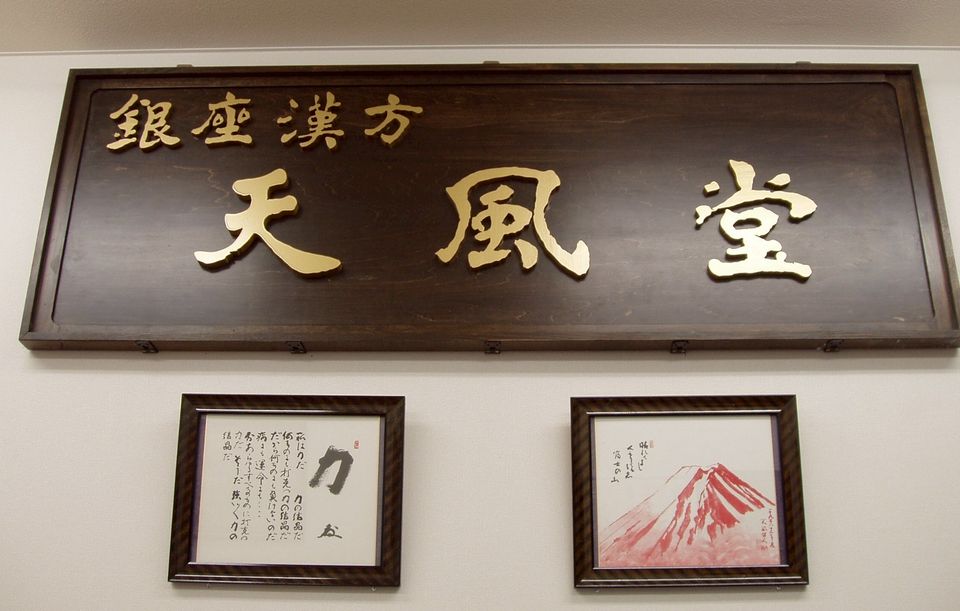 銀座漢方
天風堂
力
私は力だ 力の結晶だ
何ものにも打克つ力の結晶だ
だから何ものにも負けないのだ
病にも 運命にも‥‥
否あらゆるすべてのものに打克つ
力だ そうだ 強い〱力の
結晶だ
晴れてよし
くもりてもよし
富士の山